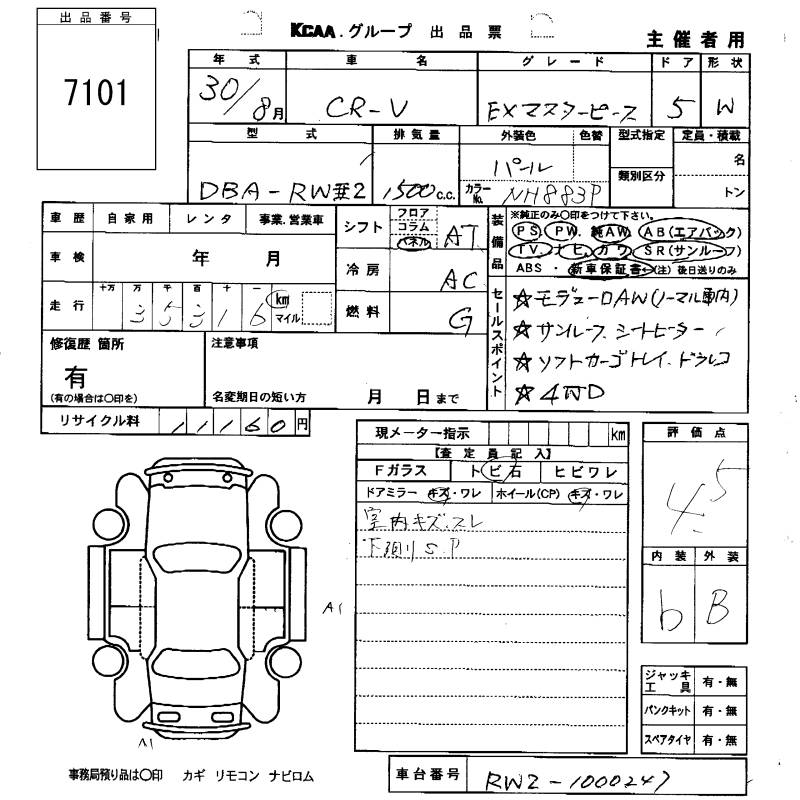 出品番号
7101
KCAA.グループ 出品票
主催者用
年式 車名 グレード ドア 形状
30/8月 CR-V EXマスターピース 5 W
型式 排気量 外装色 色替 型式指定 定員・積載
DBA-RW 2 1500 c.c. パール 類別区分 名
カラーNo. NH883P トン
車歴 自家用 レンタ 事業.営業車
車検 年 月
走行 十万 万 千 百 十 一
3 5 3 1 6 km マイル
シフト フロア コラム パネル AT
冷房 AC
燃料 G
装備品
※純正のみ〇印をつけて下さい。
PS PW. 純AW. AB(エアバック)
TV. ナビ. カワ. SR(サンルーフ)
ABS・新車保証書←(注)後日送りのみ
セールスポイント
☆モデューロAW(ノーマル車内)
☆サンルーフ. シートヒーター
☆ソフトカーゴトレイ. ドラレコ
☆4WD
修復歴 箇所
有
(有の場合は〇印を)
注意事項
名変期日の短い方 月 日まで
リサイクル料 11160円
現メーター指示 km
【査定員記入】
Fガラス トビ石 ヒビワレ
ドアミラー キズ・ワレ ホイール(CP) キズ・ワレ
室内キズ.スレ
下廻りS.P
評価点
4.5
内装 外装
b B
A1
A1
ジャッキ工具 有・無
パンクキット 有・無
スペアタイヤ 有・無
事務局預り品は〇印 カギ リモコン ナビロム
車台番号 RW2-1000247